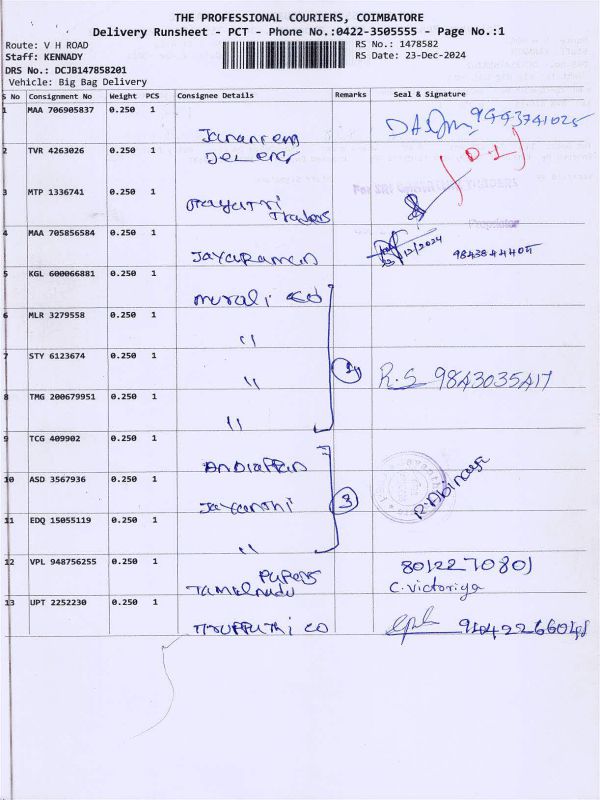 THE PROFESSIONAL COURIERS, COIMBATORE
Delivery Runsheet - PCT - Phone No.:0422-3505555 - Page No.:1
Route: V H ROAD
RS No.: 1478582
Staff: KENNADY
RS Date: 23-Dec-2024
DRS No.: DCJB147858201
Vehicle: Big Bag Delivery
S No Consignment No Weight PCS Consignee Details Remarks Seal & Signature
1 MAA 706905837 0.250 1
9443741025
2 TVR 4263026 0.250 1
D.1
3 MTP 1336741 0.250 1
Traders
Proprietor
4 MAA 705856584 0.250 1
Jayaraman
12/2024 9843844405
5 KGL 600066881 0.250 1
Murali co
6 MLR 3279558 0.250 1
"
7 STY 6123674 0.250 1
" R.S 9843035417
8 TMG 200679951 0.250 1
"
9 TCG 409902 0.250 1
Andiappan
10 ASD 3567936 0.250 1
Jayanthi 3 R. Abinaya
11 EDQ 15055119 0.250 1
"
12 VPL 948756255 0.250 1
Papers 8012270801
Tamilnadu C. Victoriya
13 UPT 2252230 0.250 1